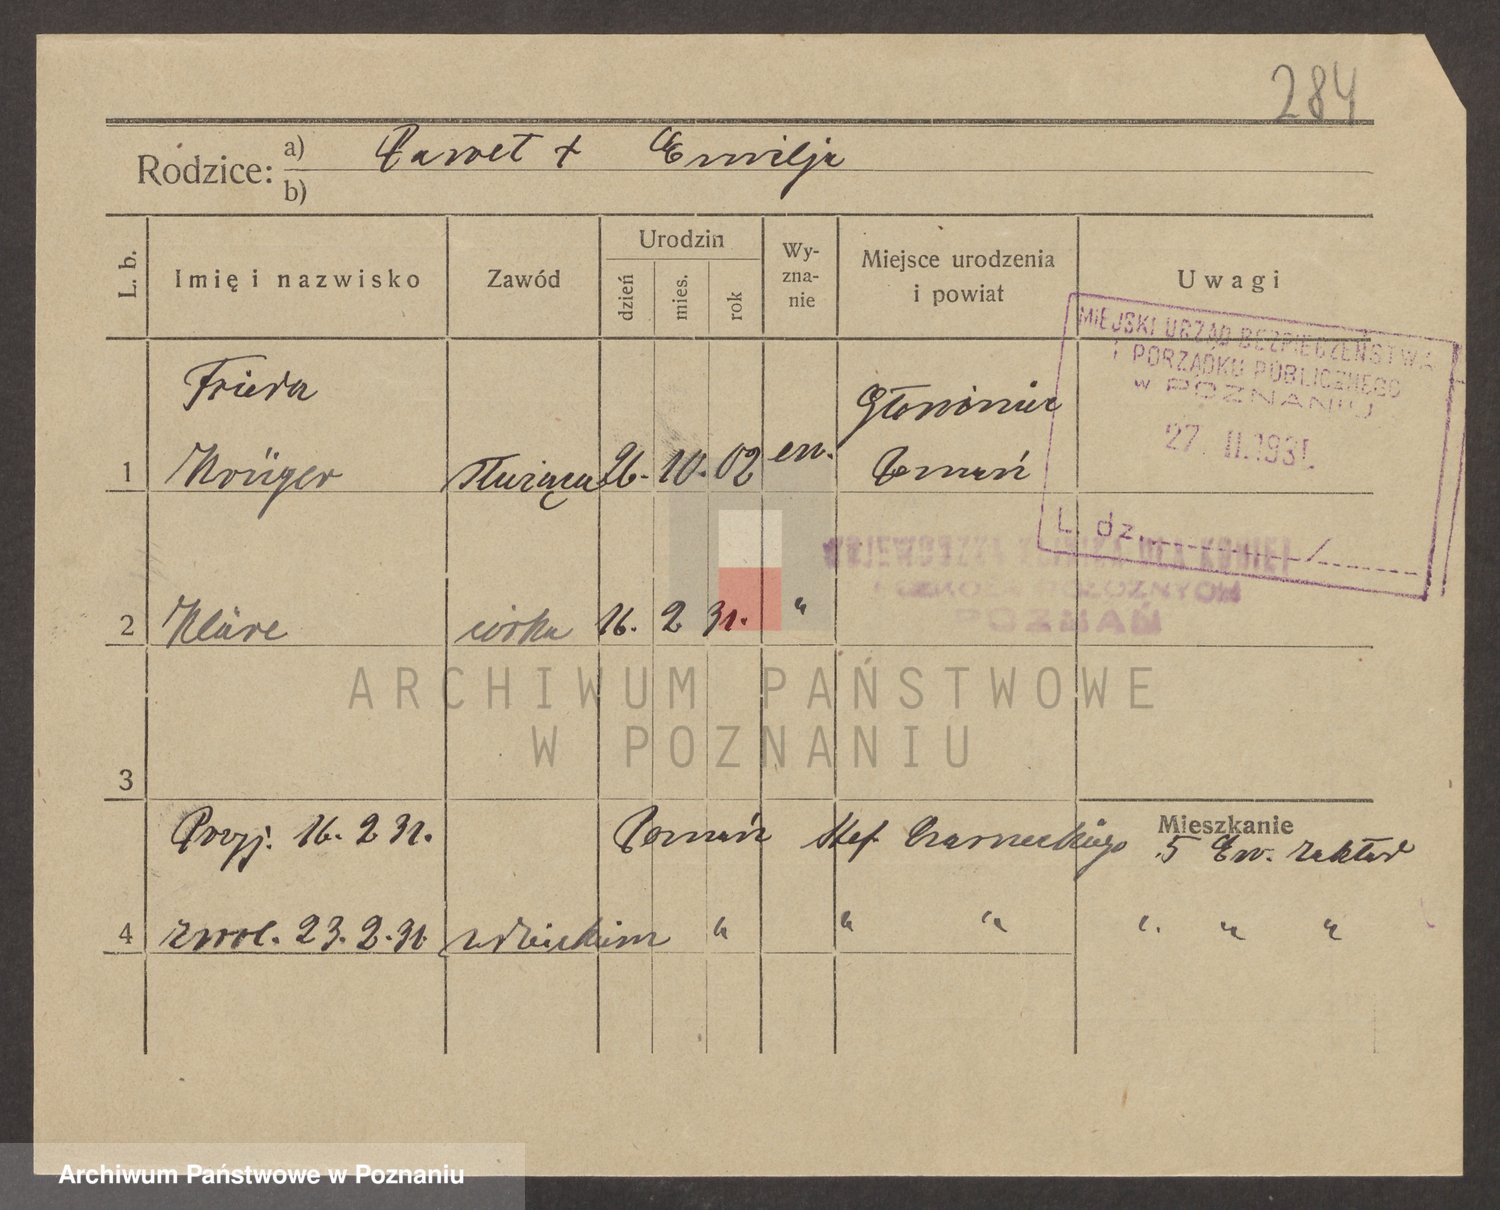 284
Rodzice: a) Paweł + Emilja
b)
L. b. Imię i nazwisko Zawód Urodzin dzień mies. rok Wy-zna-nie Miejsce urodzenia i powiat Uwagi
MIEJSKI URZĄD BEZPIECZEŃSTWA
I PORZĄDKU PUBLICZNEGO
w POZNANIU
27. II. 1931.
L. dz. /
Frieda
1 Krüger służąca 26. 10. 02 ew. Poznań
WOJEWÓDZKA KLINIKA DLA KOBIET
I SZKOŁA POŁOŻNYCH
POZNAŃ
2 Kläre córka 16. 2 31. "
ARCHIWUM PAŃSTWOWE
W POZNANIU
3
Mieszkanie
Przyj. 16. 2 31. Poznań Stef. Czarneckiego 5 Ew. zakład
4 zwol. 23. 2. 31. z dzieckiem " " " " " "
Archiwum Państwowe w Poznaniu